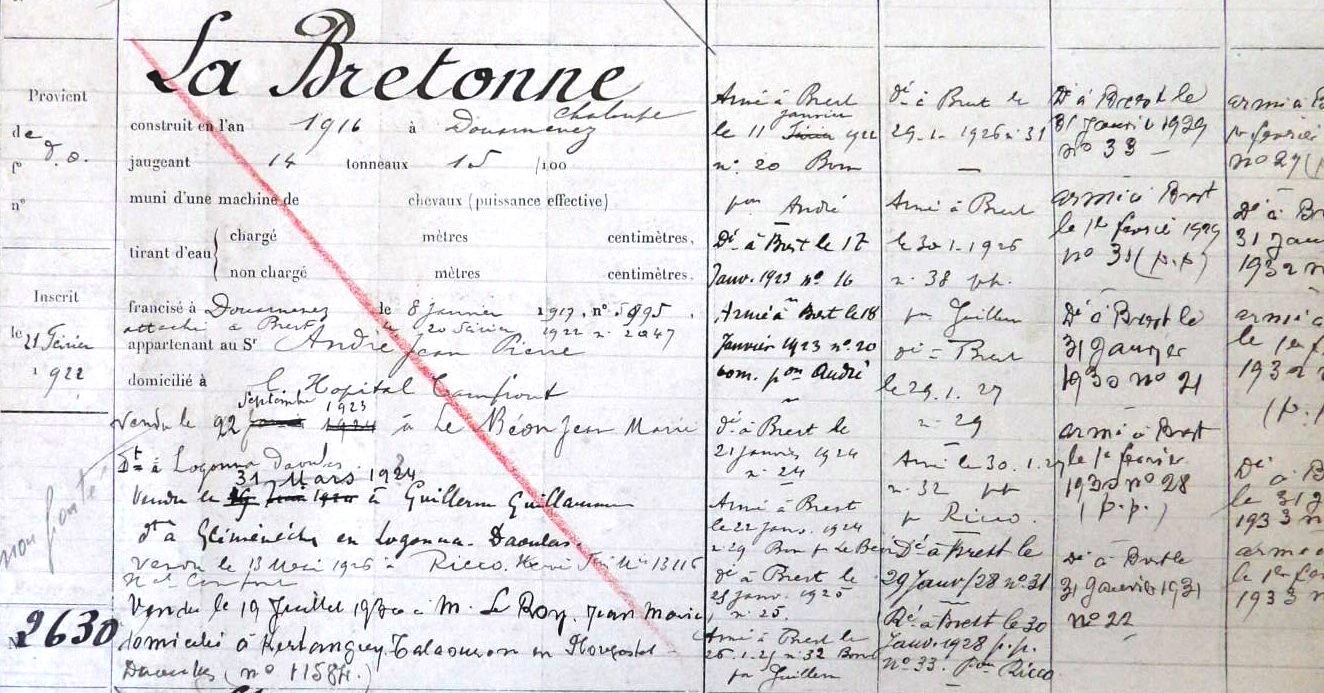 La Bretonne
Provient
de
f°
n°
Inscrit
le 21 Février
1922
non ponté
2630
chaloupe
construit en l'an 1916 à Douarnenez
jaugeant 14 tonneaux 15 /100
muni d'une machine de chevaux (puissance effective)
tirant d'eau
chargé mètres centimètres.
non chargé mètres centimètres.
francisé à Douarnenez le 8 Janvier 1917, n° 5895.
attaché à Brest le 20 Février 1922 n. 2047
appartenant au Sr André Jean Pierre
domicilié à L'Hopital Camfrout
septembre 1923
Vendu le 22 à Le Béon Jean Marie
Dt à Logonna Daoulas
31 Mars 1924
Vendu le à Guillerm Guillaume
dt à en Logonna-Daoulas.
Vendu le 13 Mai 1926 à Ricco Hervé 13116
Vendu le 19 Juillet 1930 à M. Le Roy Jean Marie
domicilié à en Plougastel-
Daoulas (n° 11584.)
Armé à Brest
janvier
le 11 1922
n° 20 Bom
pon André
Dé à Brest le 17
Janv. 1923 n° 16
Armé à Brest le 18
Janvier 1923 n° 20
bom. pon André
dé à Brest le
21 janvier 1924
n. 24
Armé à Brest
le 22 janv. 1924
n. 29 Bom p Le Béon
dé à Brest le
25 janv. 1925
n. 25.
Armé à Brest le
26.1.25 n. 32 Bom
pon Guillerm
dé à Brest le
29.1.1926 n. 31
Armé à Brest
le 30.1.1926
n. 38 ph.
pon Guillerm
dé à Brest
le 29.1.27
n. 29
Armé le 30.1.27
n. 32 ph
p Ricco.
Dé à Brest le
29 Janv/28 n° 31
Ré à Brest le 30
Janv. 1928 p.p.
n° 33. pon Ricco
Dé à Brest le
31 janvier 1929
n° 33
armé à Brest
le 1er février 1929
n° 31 (p.p)
Dé à Brest le
31 janvier
1930 n° 21
armé à Brest
le 1er février
1930 n° 28
(p.p.)
Dé à Brest le
31 janvier 1931
n° 22
armé à B
1er février
n° 27 (p
Dé à Br
31 janv
1932 n
armé à
le 1er f
1932 n
(p.
Dé à B
le 31 j
1933 n
armé
le 1er fév
1933 n